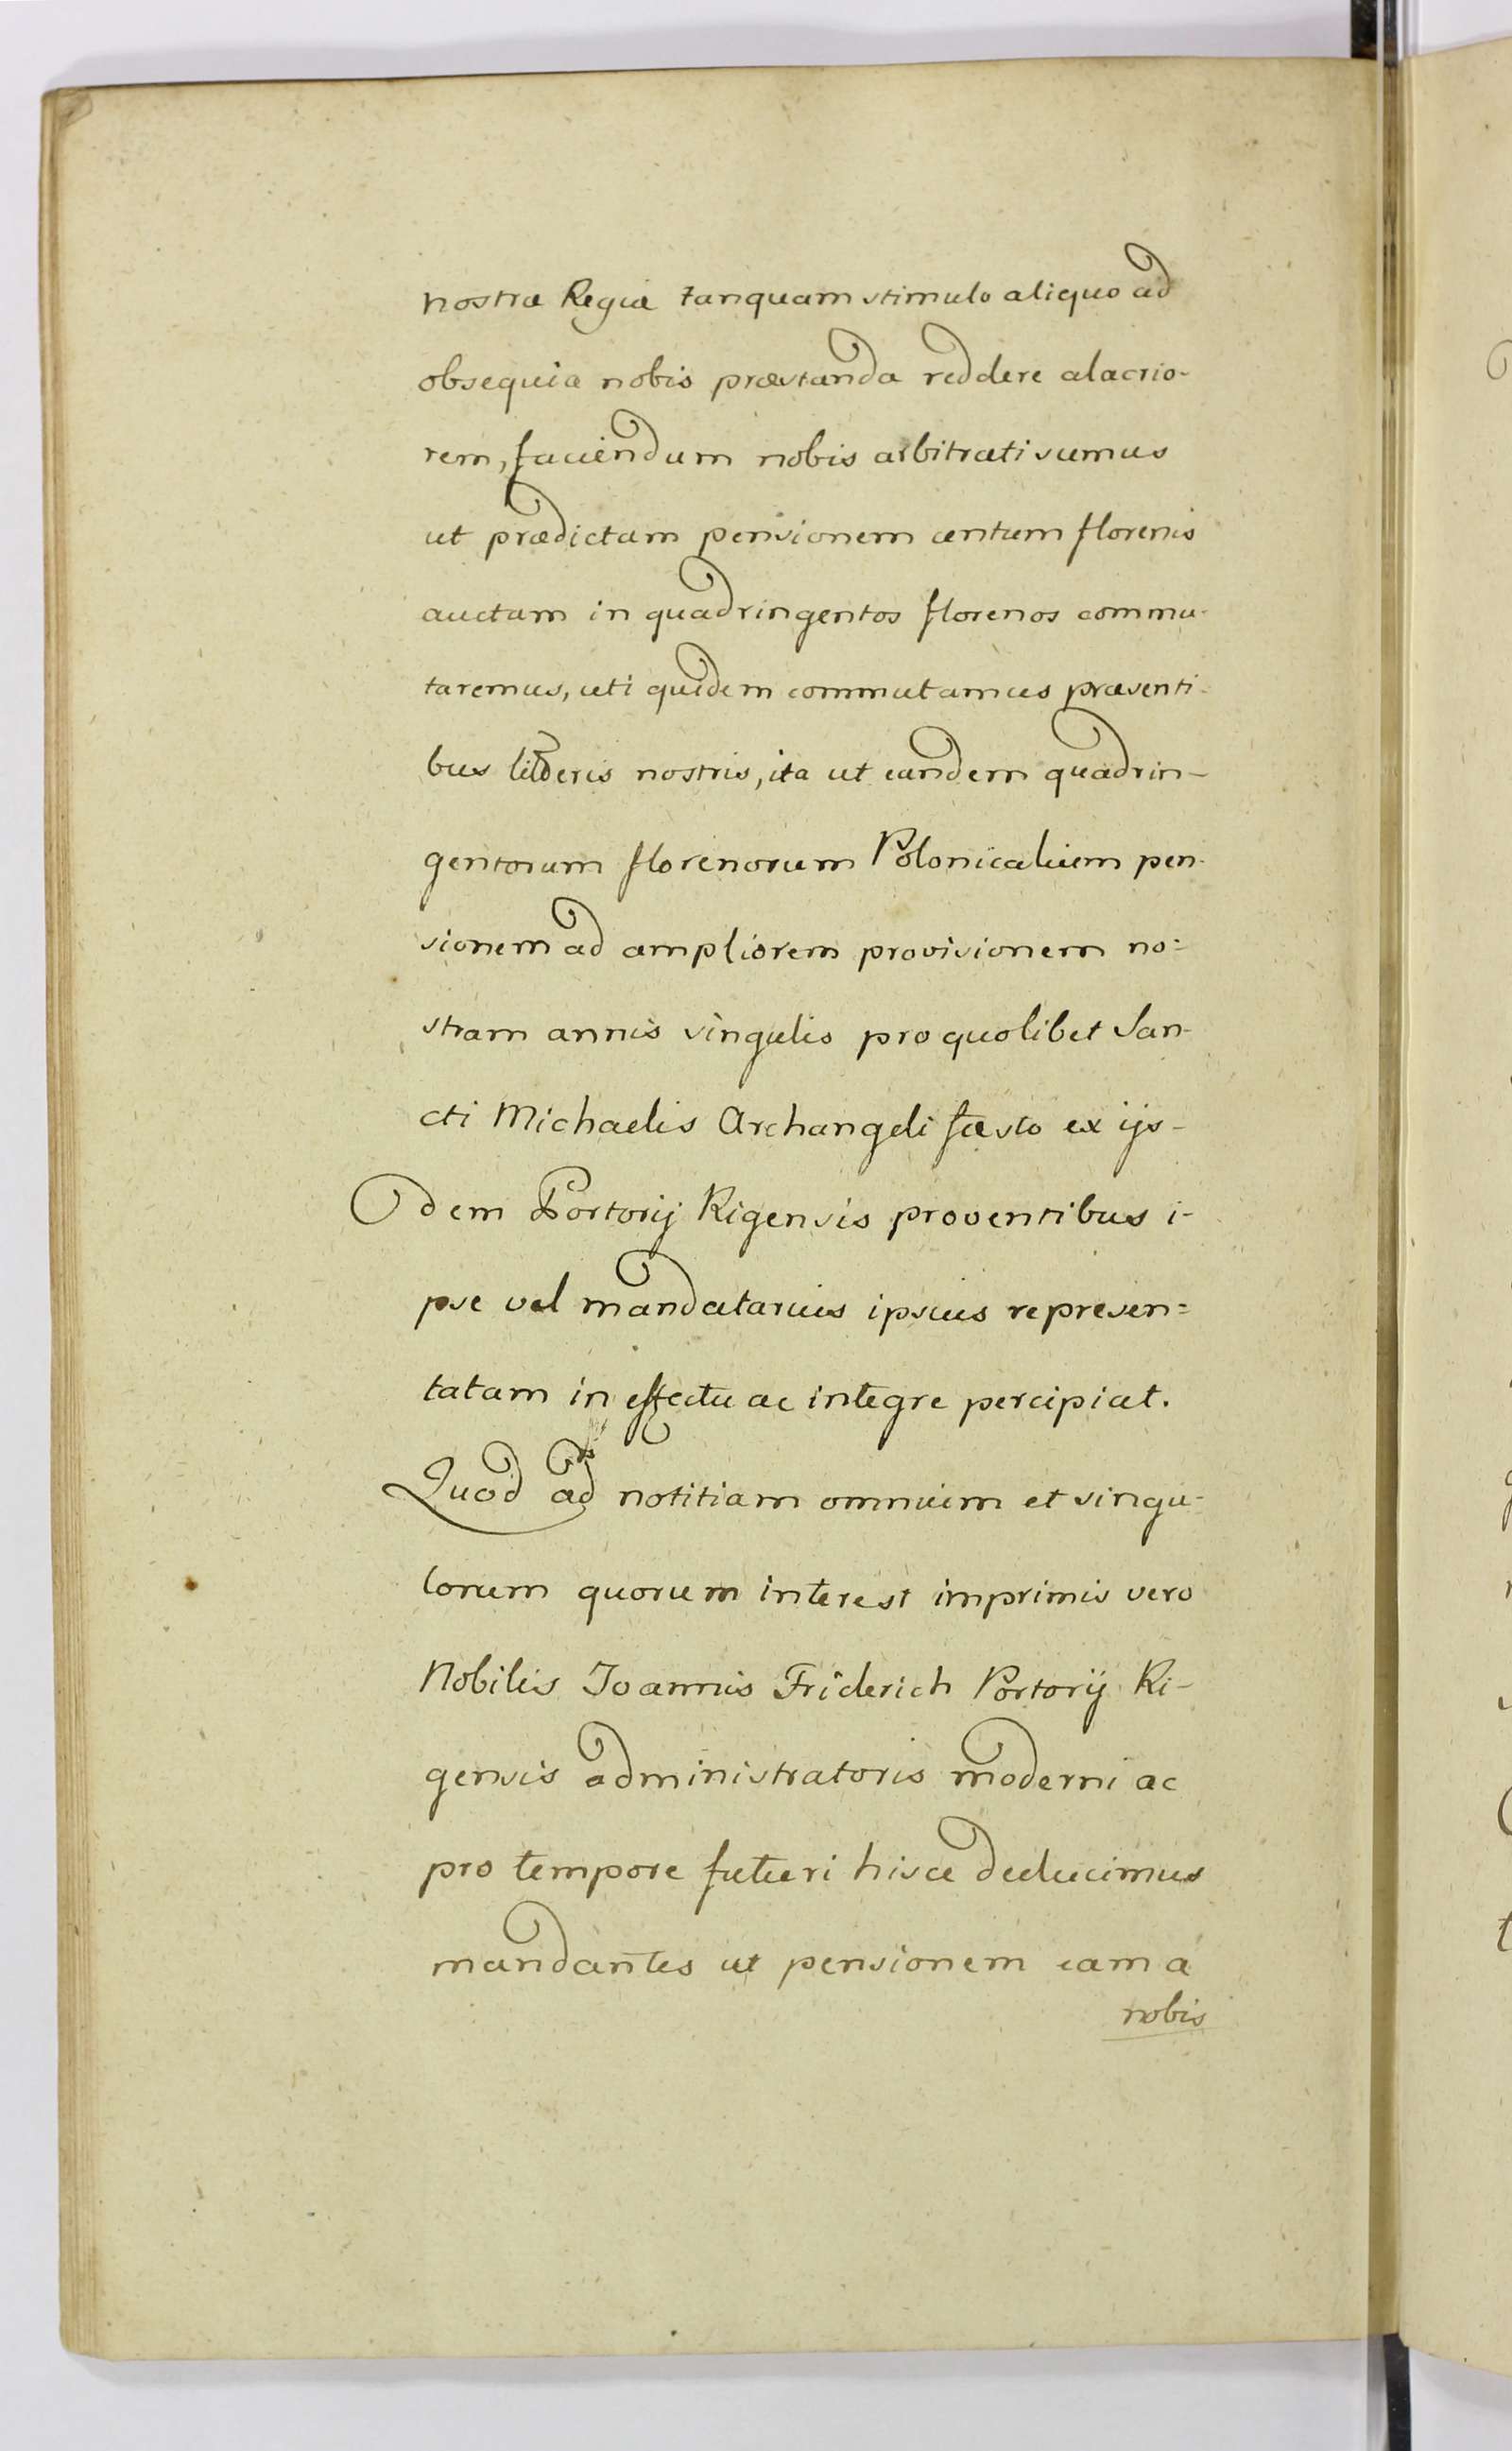 nostræ Regiæ tanquam stimulo aliquo ad
obsequia nobis præstanda reddere alacrio-
rem, faciendum nobis arbitrati sumus
ut prædictam pensionem centum florenis
auctam in quadringentos florenos commu-
taremus, uti quidem commutamus præsenti-
bus litteris nostris, ita ut eandem quadrin-
gentorum florenorum Polonicalium pen-
sionem ad ampliorem provisionem no=
stram annis singulis pro quolibet San-
cti Michaelis Archangeli fæsto ex ijs-
dem Portorij Rigensis proventibus i-
pse vel mandatarius ipsius represen=
tatam in effectu ac integre percipiat.
Quod ad notitiam omnium et singu-
lorum quorum interest imprimis vero
Nobilis Joannis Friderich Portorij Ri-
gensis administratoris moderni ac
pro tempore futuri hisce deducimus
mandantes ut pensionem eam á
nobis